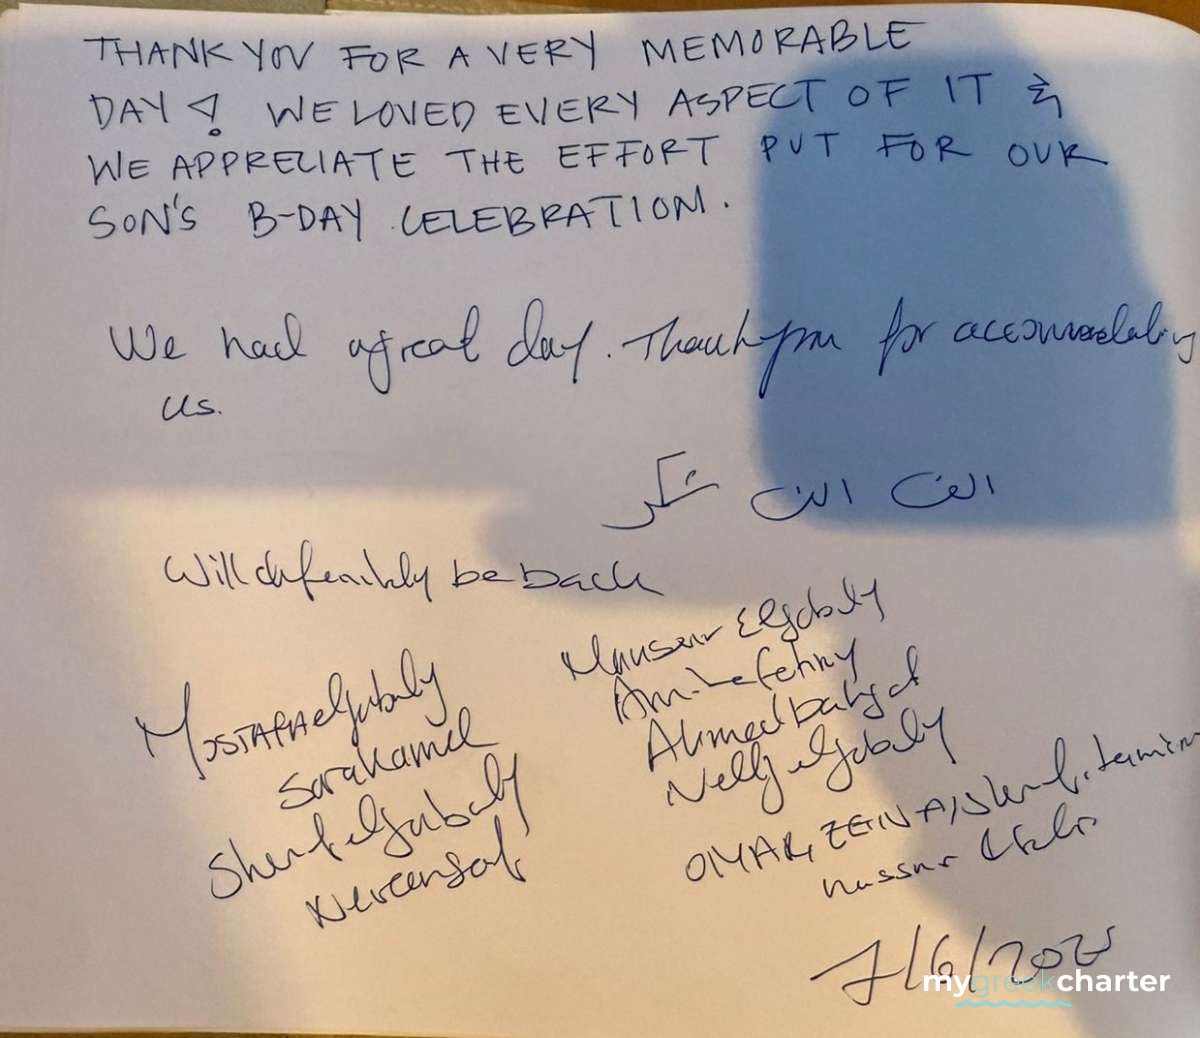 THANK YOU FOR A VERY MEMORABLE
DAY! WE LOVED EVERY ASPECT OF IT &
WE APPRECIATE THE EFFORT PUT FOR OUR
SON'S B-DAY CELEBRATION.
We had a great day. Thank you for accommodating
us.
الف الف شكر
Will definitely be back
Mansour Elgabaly
Amina fahmy
Ahmed bahgat
Nelly elgabaly
Mostafa elgabaly
Sara Kamel
Sherif elgabaly
OMAR, ZEINA,
7/6/2025
mygreekcharter